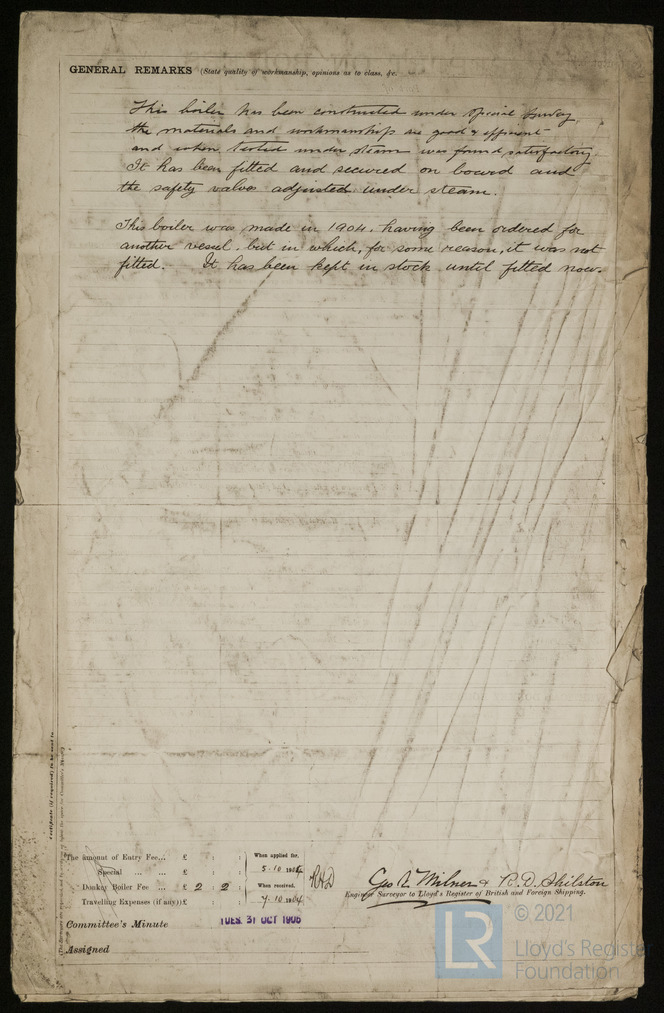 GENERAL REMARKS (State quality of workmanship, opinions as to class, &c.
This boiler has been constructed under special survey,
the materials and workmanship are good & efficient
and when tested under steam was found satisfactory.
It has been fitted and secured on board and
the safety valves adjusted under steam.
This boiler was made in 1904, having been ordered for
another vessel, but in which, for some reason, it was not
fitted. It has been kept in stock until fitted now.
Certificate (if required) to be sent to
The amount of Entry Fee... £ : :
Special ... ... £ : :
Donkey Boiler Fee ... £ 2 : 2 :
Travelling Expenses (if any) £ : :
When applied for,
5.10
When received,
7.10.
Geo. Milner & R. D. Shilston
Engineer Surveyor to Lloyd's Register of British and Foreign Shipping.
Committee's Minute TUES. 31 OCT 1905
Assigned
LR © 2021
Lloyd's Register
Foundation